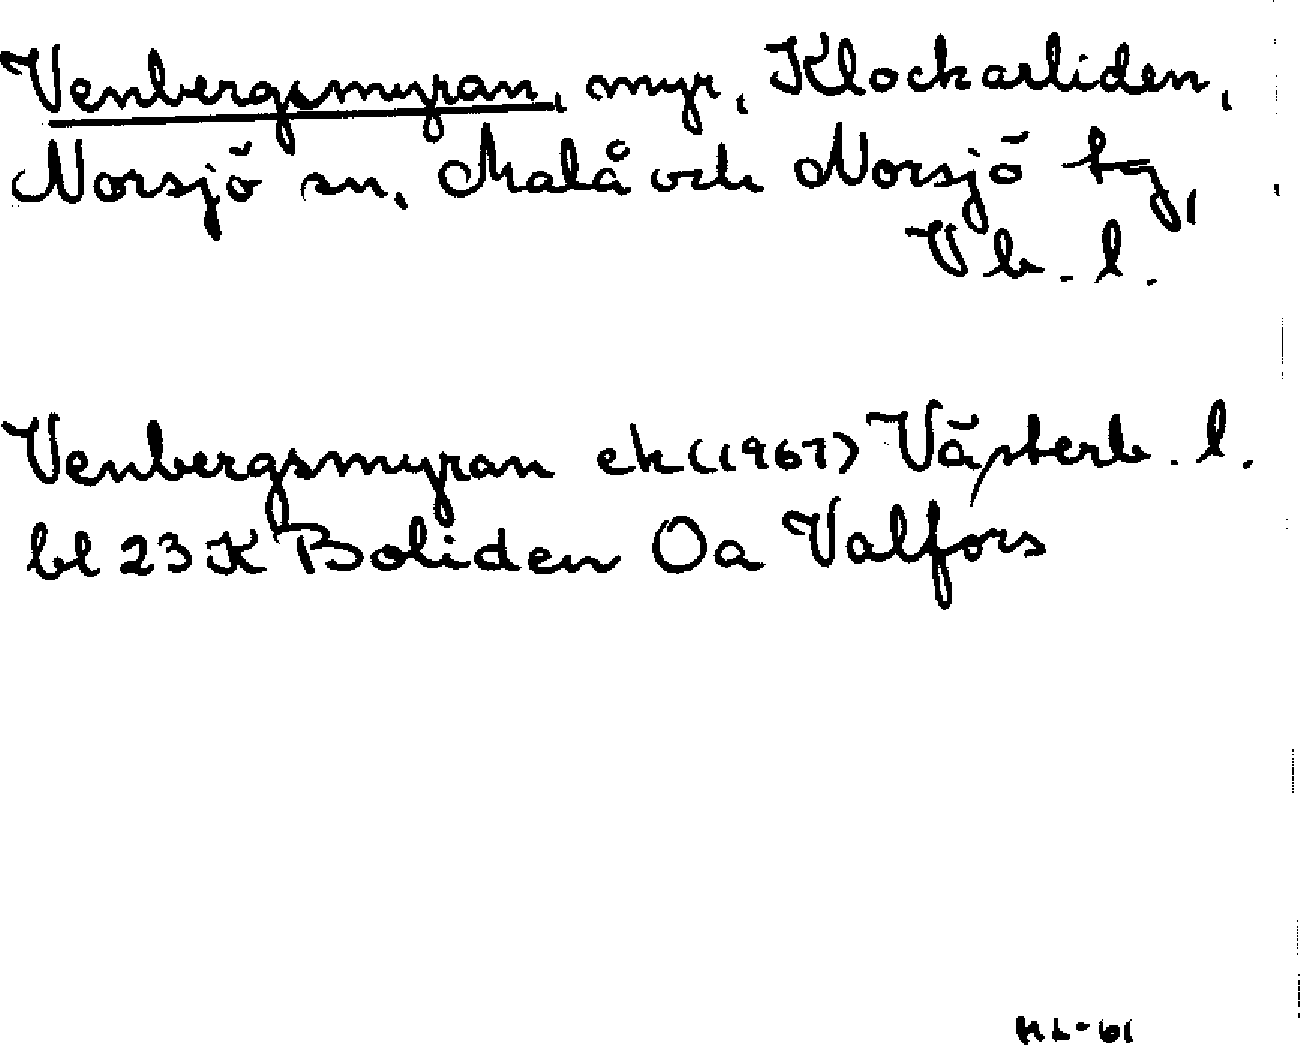 Venbergsmyran, myr, Klockarliden,
Norsjö sn, Malå och Norsjö tg,
Vb. l.
Venbergsmyran ek (1967) Västerb. l.
bl 23 K Boliden 0a Valfors
HL-61